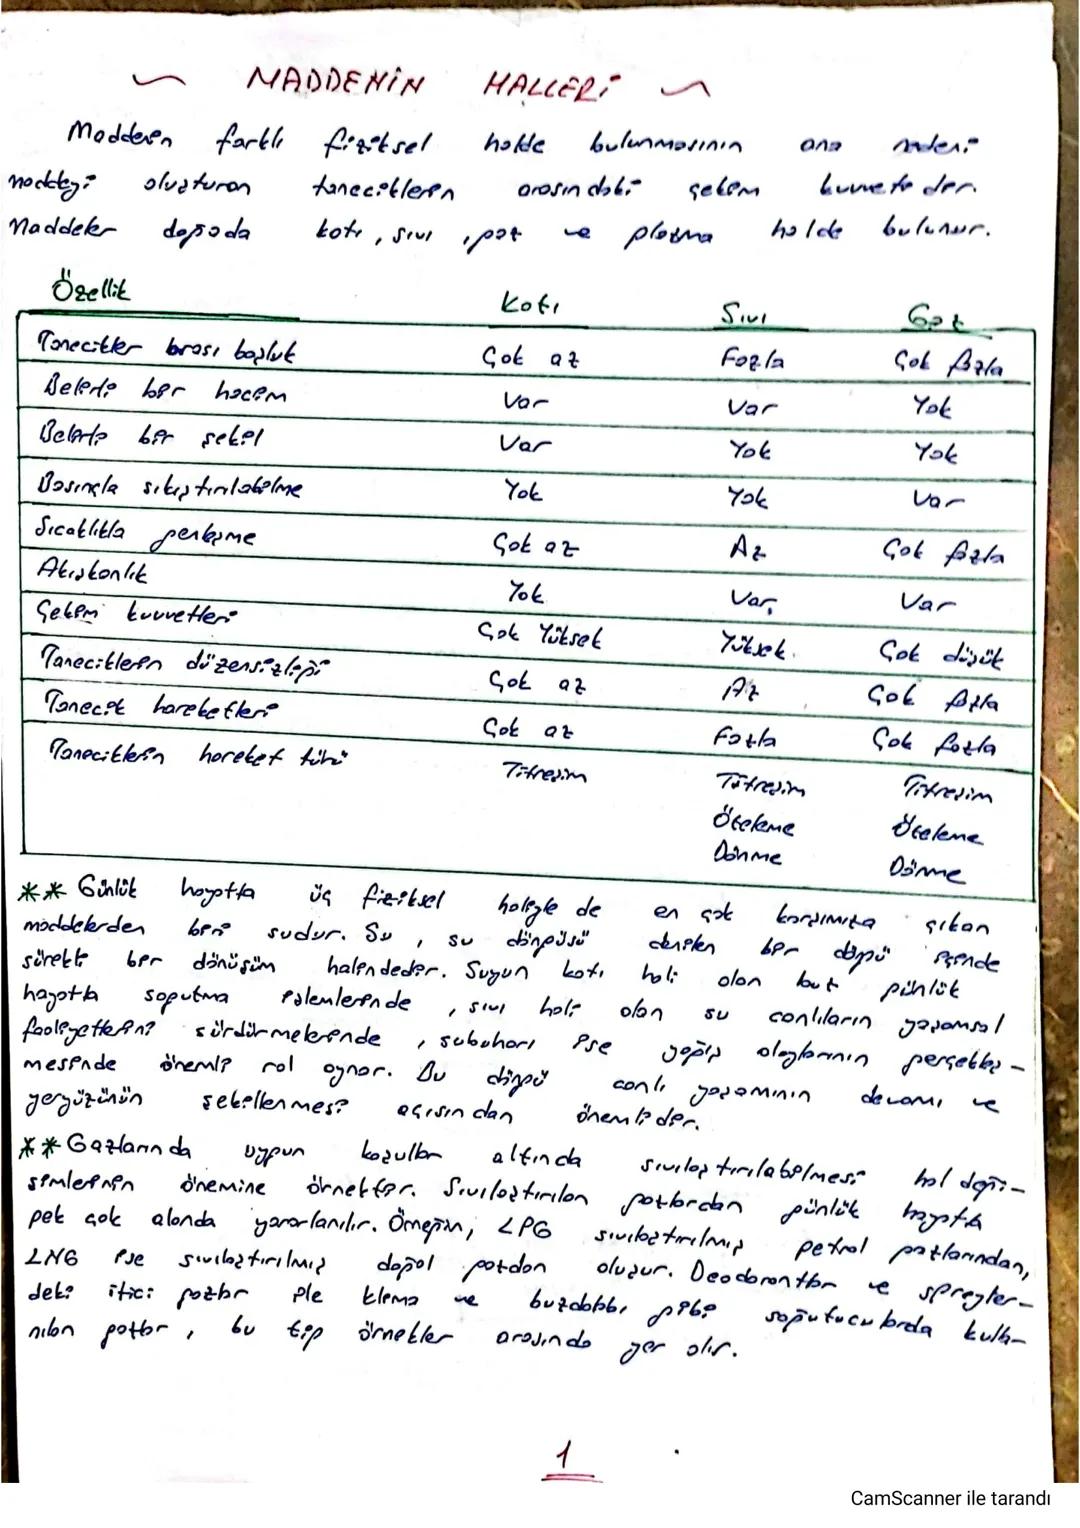 ~ MADDENİN HALLERİ ~
Maddenin farklı fiziksel halde bulunmasının ana nedeni
maddeyi oluşturan taneciklerin arasındaki çekim kuvvetidir.
Maddeler doğada katı, sıvı, gaz ve plazma halde bulunur.
Özellik Katı Sıvı Gaz
Tanecikler arası boşluk Çok az Fazla Çok fazla
Belirli bir hacim Var Var Yok
Belirli bir şekil Var Yok Yok
Basınçla sıkıştırılabilme Yok Yok Var
Sıcaklıkla genleşme Çok az Az Çok fazla
Akışkanlık Yok Var Var
Çekim kuvvetleri Çok Yüksek Yüksek Çok düşük
Taneciklerin düzensizliği Çok az Az Çok fazla
Tanecik hareketleri Çok az Fazla Çok fazla
Taneciklerin hareket türü Titreşim Titreşim Titreşim
Öteleme Öteleme
Dönme Dönme
** Günlük hayatta üç fiziksel haliyle de en çok karşımıza çıkan
maddelerden biri sudur. Su, su döngüsü denilen bir döngü içinde
sürekli bir dönüşüm halindedir. Suyun katı hali olan buz günlük
hayatta soğutma işlemlerinde, sıvı hali olan su canlıların yaşamsal
faaliyetlerini sürdürmelerinde, su buharı ise yağış olaylarının gerçekleş-
mesinde önemli rol oynar. Bu döngü canlı yaşamının devamı ve
yeryüzünün şekillenmesi açısından önemlidir.
** Gazlarında uygun koşullar altında sıvılaştırılabilmesi hal deği-
şimlerinin önemine örnektir. Sıvılaştırılan gazlardan günlük hayatta
pek çok alanda yararlanılır. Örneğin; LPG sıvılaştırılmış petrol gazlarından,
LNG ise sıvılaştırılmış doğal gazdan oluşur. Deodorantlar ve spreyler-
deki itici gazlar ile klima ve buzdolabı gibi soğutucularda kulla-
nılan gazlar, bu tip örnekler arasında yer alır.
1
CamScanner ile tarandı